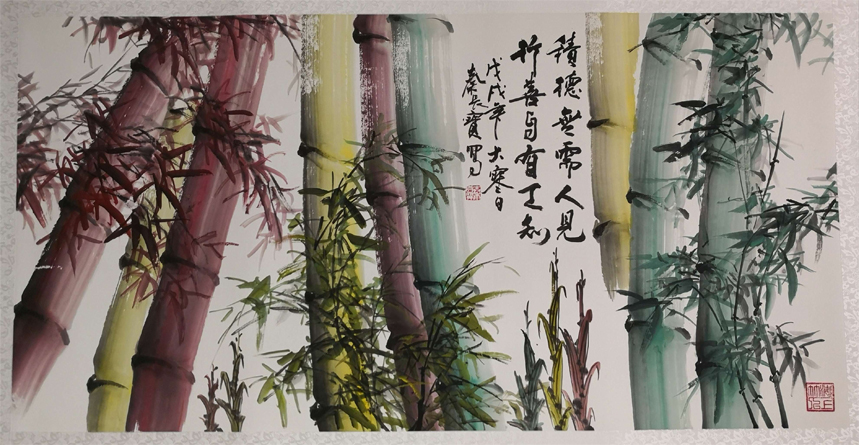 積德無需人見
行善自有天知
戊戌年大寒日